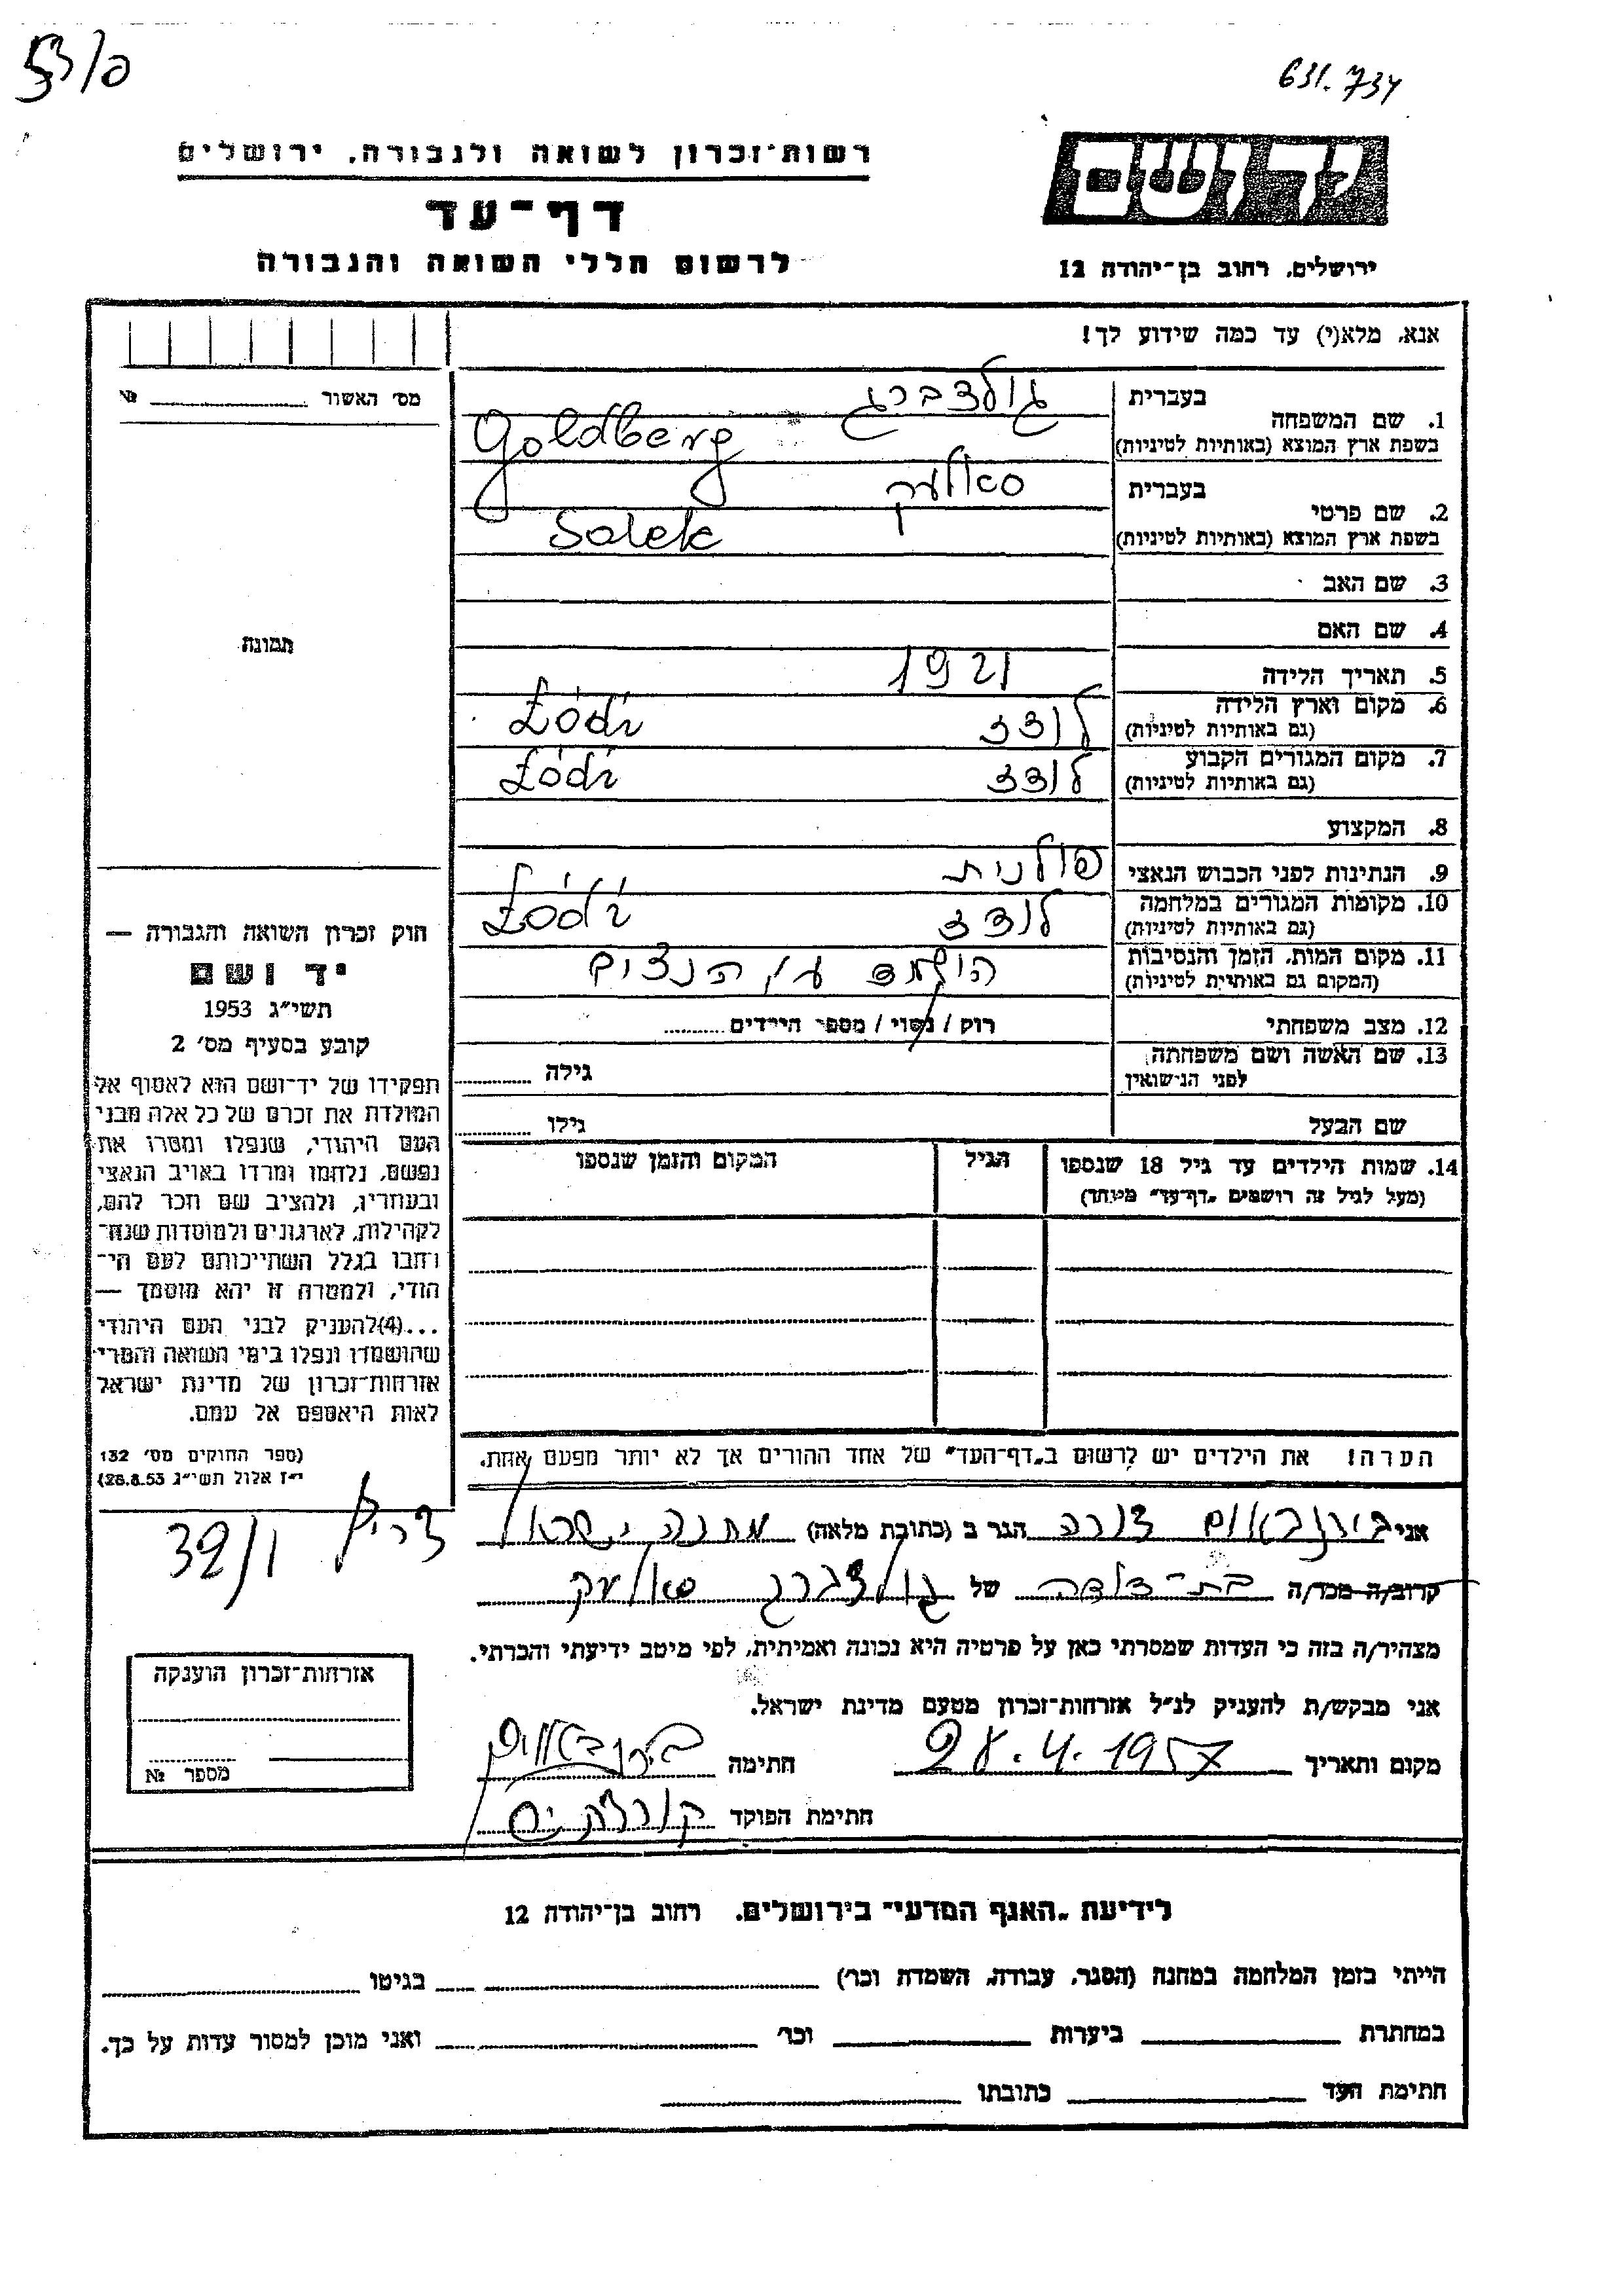 631.734
רשות־זכרון לשואה ולגבורה, ירושלים
דף־עד
לרשום חללי השואה והגבורה
יד ושם
ירושלים, רחוב בן־יהודה 12
אנא, מלא(י) עד כמה שידוע לך!
מס׳ האשור №
1. שם המשפחה
בעברית גולדברג
בשפת ארץ המוצא (באותיות לטיניות) Goldberg
2. שם פרטי
בעברית סאלעק
בשפת ארץ המוצא (באותיות לטיניות) Salek
3. שם האב
4. שם האם
תמונה
5. תאריך הלידה 1921
6. מקום וארץ הלידה לודז Łódź
(גם באותיות לטיניות)
7. מקום המגורים הקבוע לודז Łódź
(גם באותיות לטיניות)
8. המקצוע
9. הנתינות לפני הכבוש הנאצי פולנית
10. מקומות המגורים במלחמה לודז Łódź
(גם באותיות לטיניות)
11. מקום המות, הזמן והנסיבות הושמד ע"י הנצים
(המקום גם באותיות לטיניות)
12. מצב משפחתי רוק / נשוי / מספר הילדים
13. שם האשה ושם משפחתה
לפני הנישואין גילה
שם הבעל גילו
14. שמות הילדים עד גיל 18 שנספו הגיל המקום והזמן שנספו
(מעל לגיל זה רושמים „דף־עד״ מיוחד)
הערה! את הילדים יש לרשום ב„דף־העד״ של אחד ההורים אך לא יותר מפעם אחת.
חוק זכרון השואה והגבורה —
יד ושם
תשי״ג 1953
קובע בסעיף מס׳ 2
תפקידו של יד־ושם הוא לאסוף אל
המולדת את זכרם של כל אלה מבני
העם היהודי, שנפלו ומסרו את
נפשם, נלחמו ומרדו באויב הנאצי
ובעוזריו, ולהציב שם וזכר להם,
לקהילות, לארגונים ולמוסדות שנח־
רבו בגלל השתייכותם לעם הי־
הודי, ולמטרה זו יהא מוסמך —
...(4)להעניק לבני העם היהודי
שהושמדו ונפלו בימי השואה והמרי
אזרחות־זכרון של מדינת ישראל
לאות היאספם אל עמם.
(ספר החוקים מס׳ 132
י״ז אלול תשי״ג 28.8.53)
39/1
אני בירנבאום דורה הגר ב (כתובת מלאה) מחנה ישראל
קרוב/ה מכר/ה בת-דודה של גולדברג סאלעק
מצהיר/ה בזה כי העדות שמסרתי כאן על פרטיה היא נכונה ואמיתית, לפי מיטב ידיעתי והכרתי.
אני מבקש/ת להעניק לנ״ל אזרחות־זכרון מטעם מדינת ישראל.
מקום ותאריך 28.4.1957 חתימה בירנבאום
חתימת הפוקד
אזרחות־זכרון הוענקה
מספר №
לידיעת „האגף המדעי״ בירושלים, רחוב בן־יהודה 12
הייתי בזמן המלחמה במחנה (הסגר, עבודה, השמדה וכו׳) בגיטו
במחתרת ביערות וכו׳ ואני מוכן למסור עדות על כך.
חתימת העד כתובתו